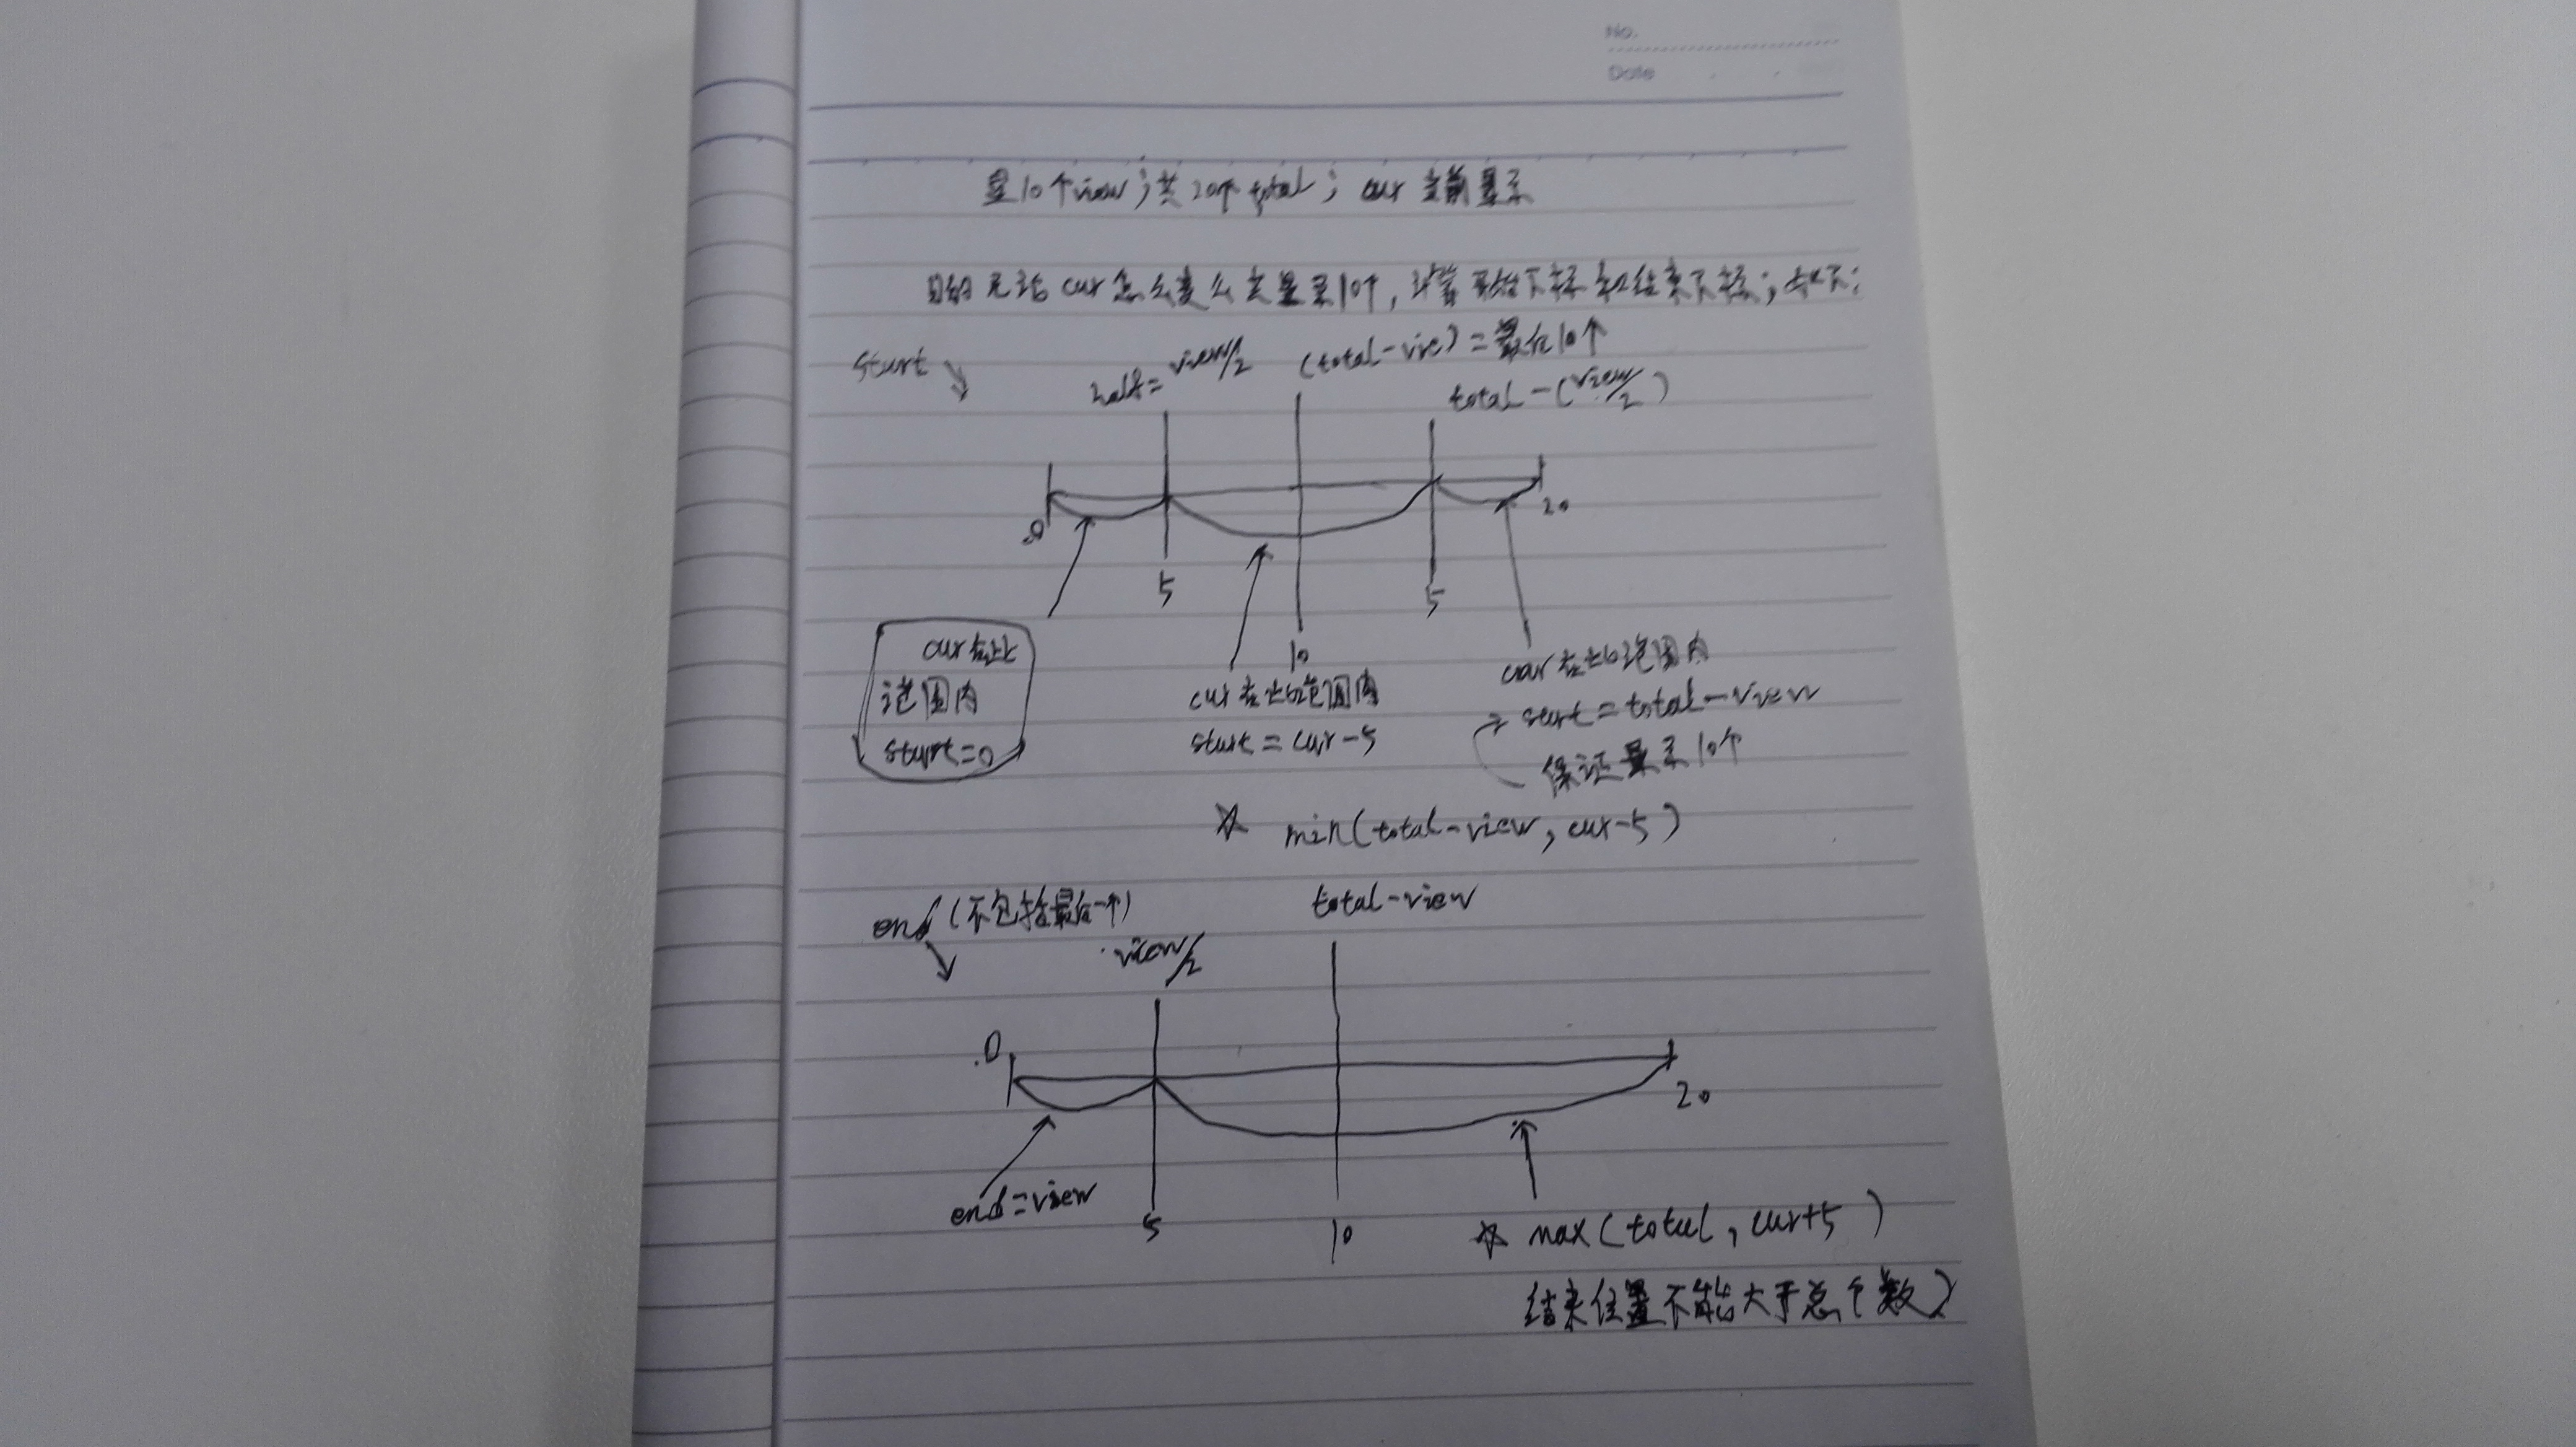 No.
Date
显10个view；共20个total；cur 当前显示
目的 无论cur怎么变么都显示10个，计算开始下标和结束下标；如下：
start
half=view/2
(total-vie)=最后10个
total-(view/2)
0
20
5
10
5
cur在此
范围内
start=0
cur在此范围内
start=cur-5
cur在此范围内
start=total-view
保证显示10个
min(total-view, cur-5)
end(不包括最后一个)
view/2
total-view
0
20
end=view
5
10
max(total, cur+5)
结束位置不能大于总个数)